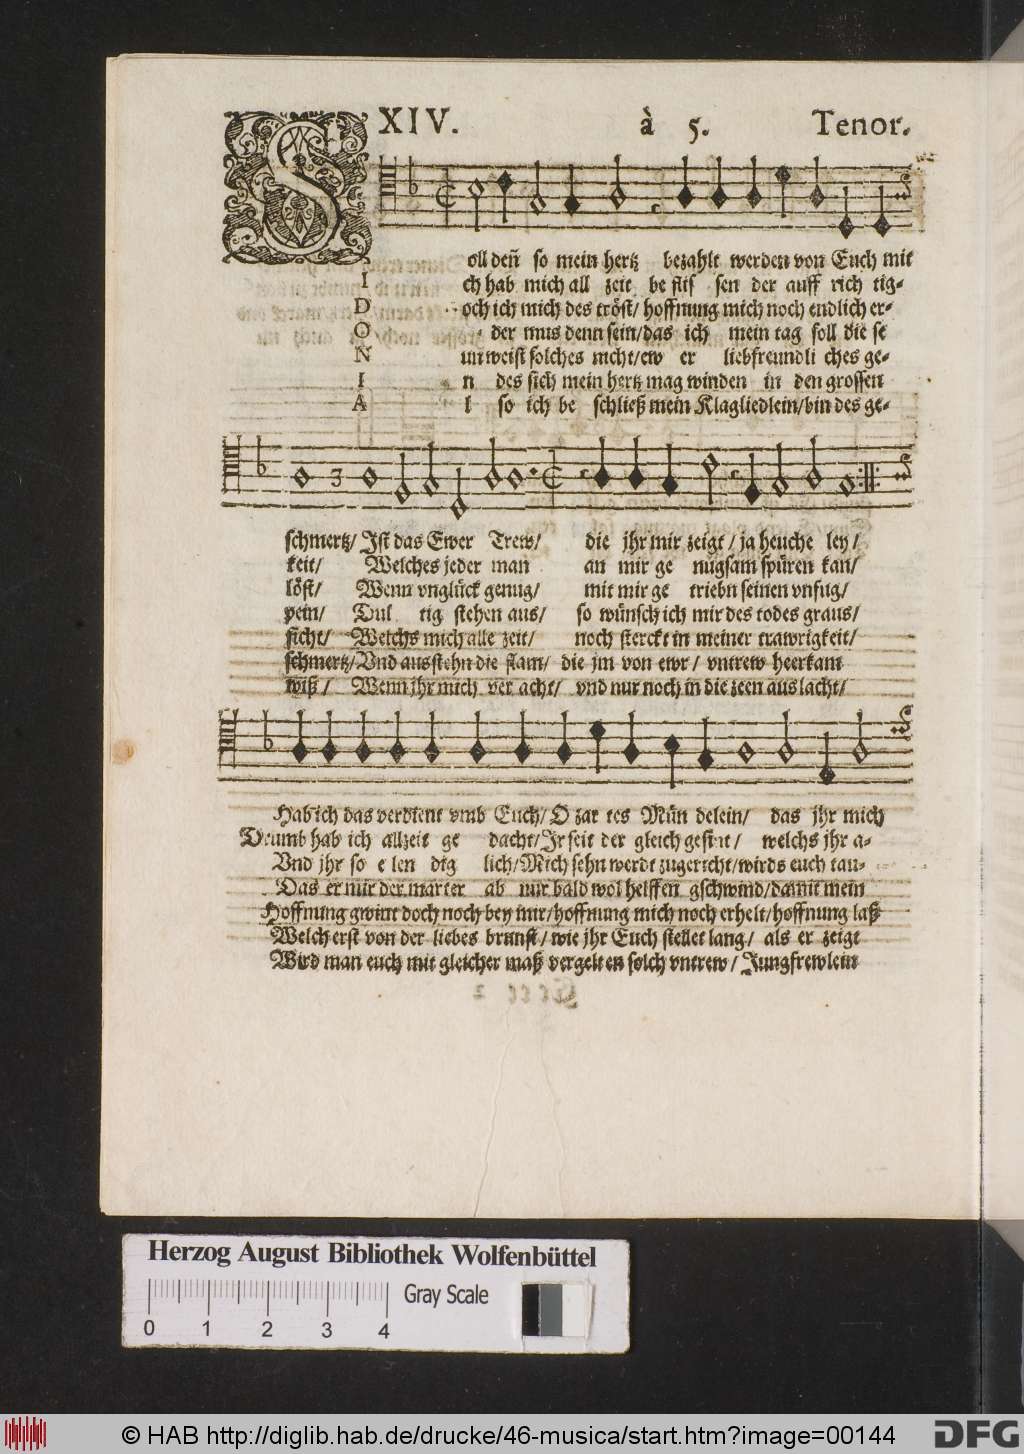 XIV. à 5. Tenor.
Soll den̄ so mein hertz bezahlt werden von Euch mit
Ich hab mich all zeit be flis sen der auff rich tig-
Doch ich mich des tröst/ hoffnung mich noch endlich er-
Oder mus denn sein/das ich mein tag soll die se
Nun weist solches nicht/ew er liebfreundli ches ge-
In des sich mein hertz mag winden in den grossen
Al so ich be schließ mein Klagliedlein/bin des ge-
schmertz/ Ist das Ewer Trew/ die jhr mir zeigt/ ja heuche ley/
keit/ Welches jeder man an mir ge nugsam spüren kan/
löst/ Wenn vnglück genug/ mit mir ge triebn seinen vnfug/
pein/ Dul tig stehen aus/ so wünsch ich mir des todes graus/
sicht/ Welchs mich alle zeit/ noch sterckt in meiner trawrigkeit/
schmertz/Vnd ausstehn die flam/ die jm von ewr/ vntrew heerkam
wiß/ Wenn jhr mich ver acht/ vnd nur noch in die zeen aus lacht/
Hab ich das verdient vmb Euch/ O zar tes Mün delein/ das jhr mich
Drumb hab ich allzeit ge dacht/Ir seit der gleich gesint/ welchs jhr a-
Vnd jhr so e len dig lich/Mich sehn werdt zugericht/wirds euch tau-
Das er mir der marter ab mir bald wol helffen gschwind/damit mein
Hoffnung gwint doch noch bey mir/hoffnung mich noch erhelt/hoffnung laß
Welch erst von der liebes brunst/ wie jhr Euch stellet lang/ als er zeigt
Wird man euch mit gleicher maß vergelten solch vntrew/ Jungfrewlein
Herzog August Bibliothek Wolfenbüttel
Gray Scale
0 1 2 3 4
© HAB http://diglib.hab.de/drucke/46-musica/start.htm?image=00144
DFG